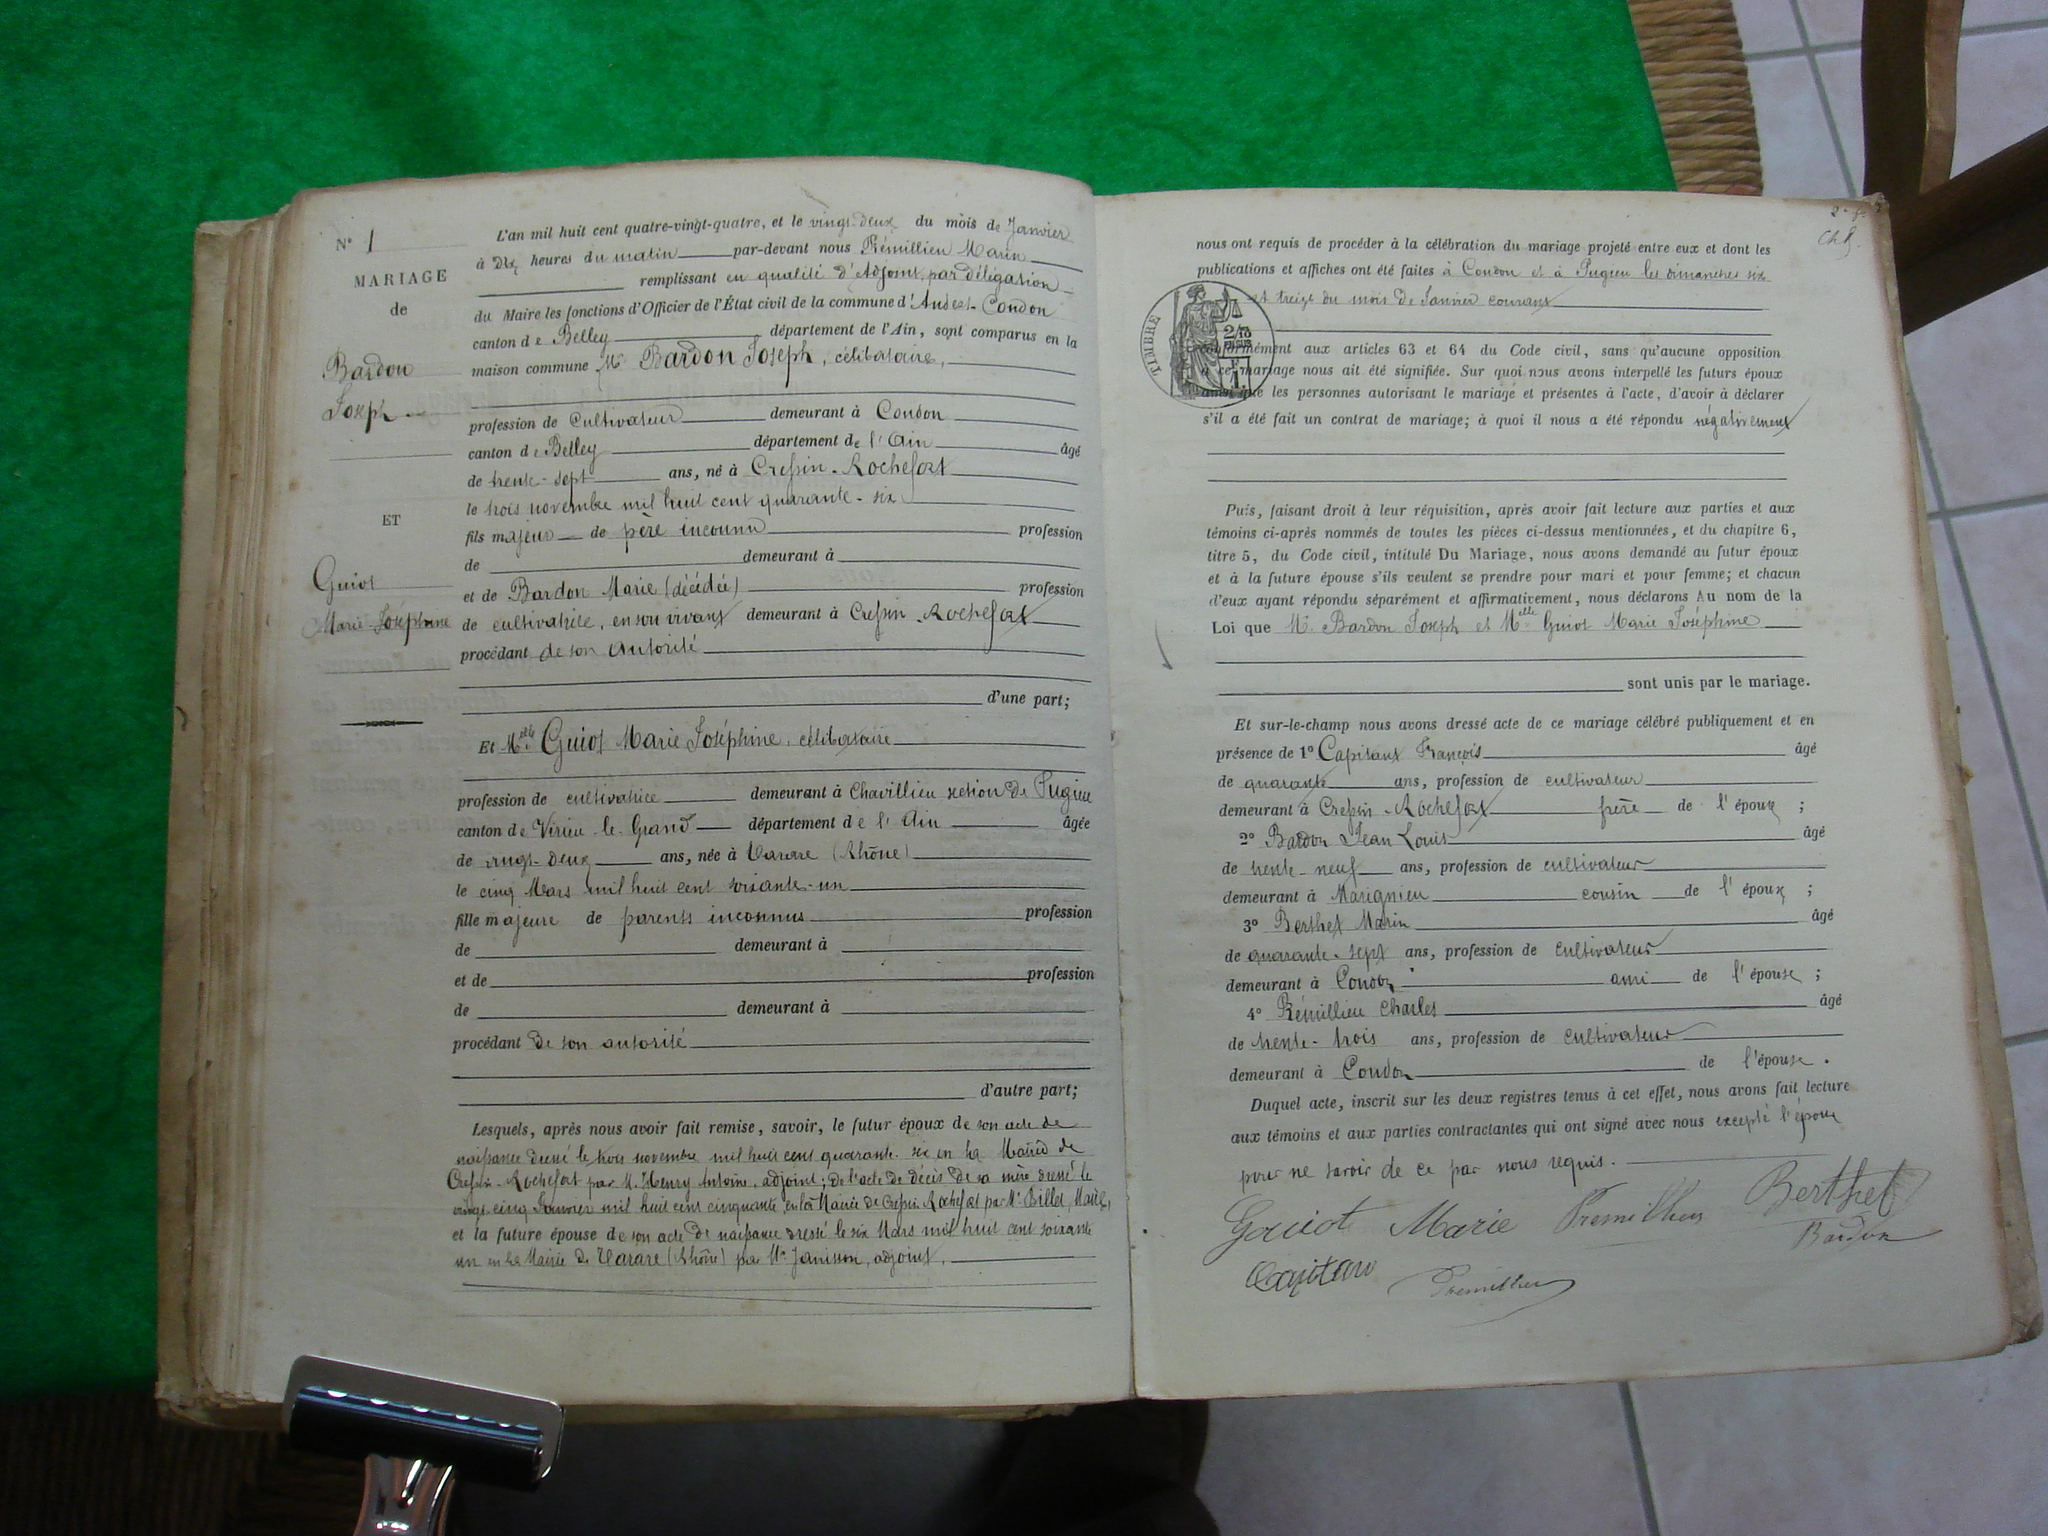 N° 1
MARIAGE
de
Bardon
Joseph
ET
Guiot
Marie-Joséphine
L'an mil huit cent quatre-vingt-quatre, et le vingt-deux du mois de Janvier
à dix heures du matin par-devant nous Prémillieu Marin
remplissant en qualité d'Adjoint, par délégation
du Maire les fonctions d'Officier de l'État civil de la commune d'Andert-Condon
canton de Belley département de l'Ain, sont comparus en la
maison commune Mr Bardon Joseph, célibataire,
profession de cultivateur demeurant à Condon
canton de Belley département de l'Ain âgé
de trente-sept ans, né à Cressin-Rochefort
le trois novembre mil huit cent quarante-six
fils majeur de père inconnu profession
de demeurant à
et de Bardon Marie (décédée) profession
de cultivatrice, en son vivant demeurant à Cressin-Rochefort
procédant de son autorité
d'une part;
Et Melle Guiot Marie Joséphine, célibataire
profession de cultivatrice demeurant à Chavillieu section de Pugieu
canton de Virieu-le-Grand département de l'Ain âgée
de vingt-deux ans, née à Tarare (Rhône)
le cinq Mars mil huit cent soixante-un
fille majeure de parents inconnus profession
de demeurant à
et de profession
de demeurant à
procédant de son autorité
d'autre part;
Lesquels, après nous avoir fait remise, savoir, le futur époux de son acte de
naissance dressé le trois novembre mil huit cent quarante-six en la Mairie de
Cressin-Rochefort par M. Henry Antoine, adjoint; de l'acte de décès de sa mère dressé le
vingt-cinq Janvier mil huit cent cinquante, en la Mairie de Cressin-Rochefort par Mr Billet, Maire,
et la future épouse de son acte de naissance dressé le six Mars mil huit cent soixante
un en la Mairie de Tarare (Rhône) par Mr Janisson, adjoint,
nous ont requis de procéder à la célébration du mariage projeté entre eux et dont les
publications et affiches ont été faites à Condon et à Pugieu les dimanches six
et treize du mois de Janvier courant
TIMBRE
conformément aux articles 63 et 64 du Code civil, sans qu'aucune opposition
à ce mariage nous ait été signifiée. Sur quoi nous avons interpellé les futurs époux
ainsi que les personnes autorisant le mariage et présentes à l'acte, d'avoir à déclarer
s'il a été fait un contrat de mariage; à quoi il nous a été répondu négativement
Puis, faisant droit à leur réquisition, après avoir fait lecture aux parties et aux
témoins ci-après nommés de toutes les pièces ci-dessus mentionnées, et du chapitre 6,
titre 5, du Code civil, intitulé Du Mariage, nous avons demandé au futur époux
et à la future épouse s'ils veulent se prendre pour mari et pour femme; et chacun
d'eux ayant répondu séparément et affirmativement, nous déclarons Au nom de la
Loi que Mr Bardon Joseph et Melle Guiot Marie Joséphine
sont unis par le mariage.
Et sur-le-champ nous avons dressé acte de ce mariage célébré publiquement et en
présence de 1° Capitant François âgé
de quarante ans, profession de cultivateur
demeurant à Cressin-Rochefort frère de l'époux ;
2° Bardon Jean Louis âgé
de trente-neuf ans, profession de cultivateur
demeurant à Marignieu cousin de l'époux ;
3° Berthet Marin âgé
de quarante-sept ans, profession de cultivateur
demeurant à Condon ami de l'épouse ;
4° Prémillieu Charles âgé
de trente-trois ans, profession de cultivateur
demeurant à Condon de l'épouse.
Duquel acte, inscrit sur les deux registres tenus à cet effet, nous avons fait lecture
aux témoins et aux parties contractantes qui ont signé avec nous excepté l'époux
pour ne savoir de ce par nous requis.
Gouiot Marie Premillieu Berthet
Bardon
Capitan
Premillieu